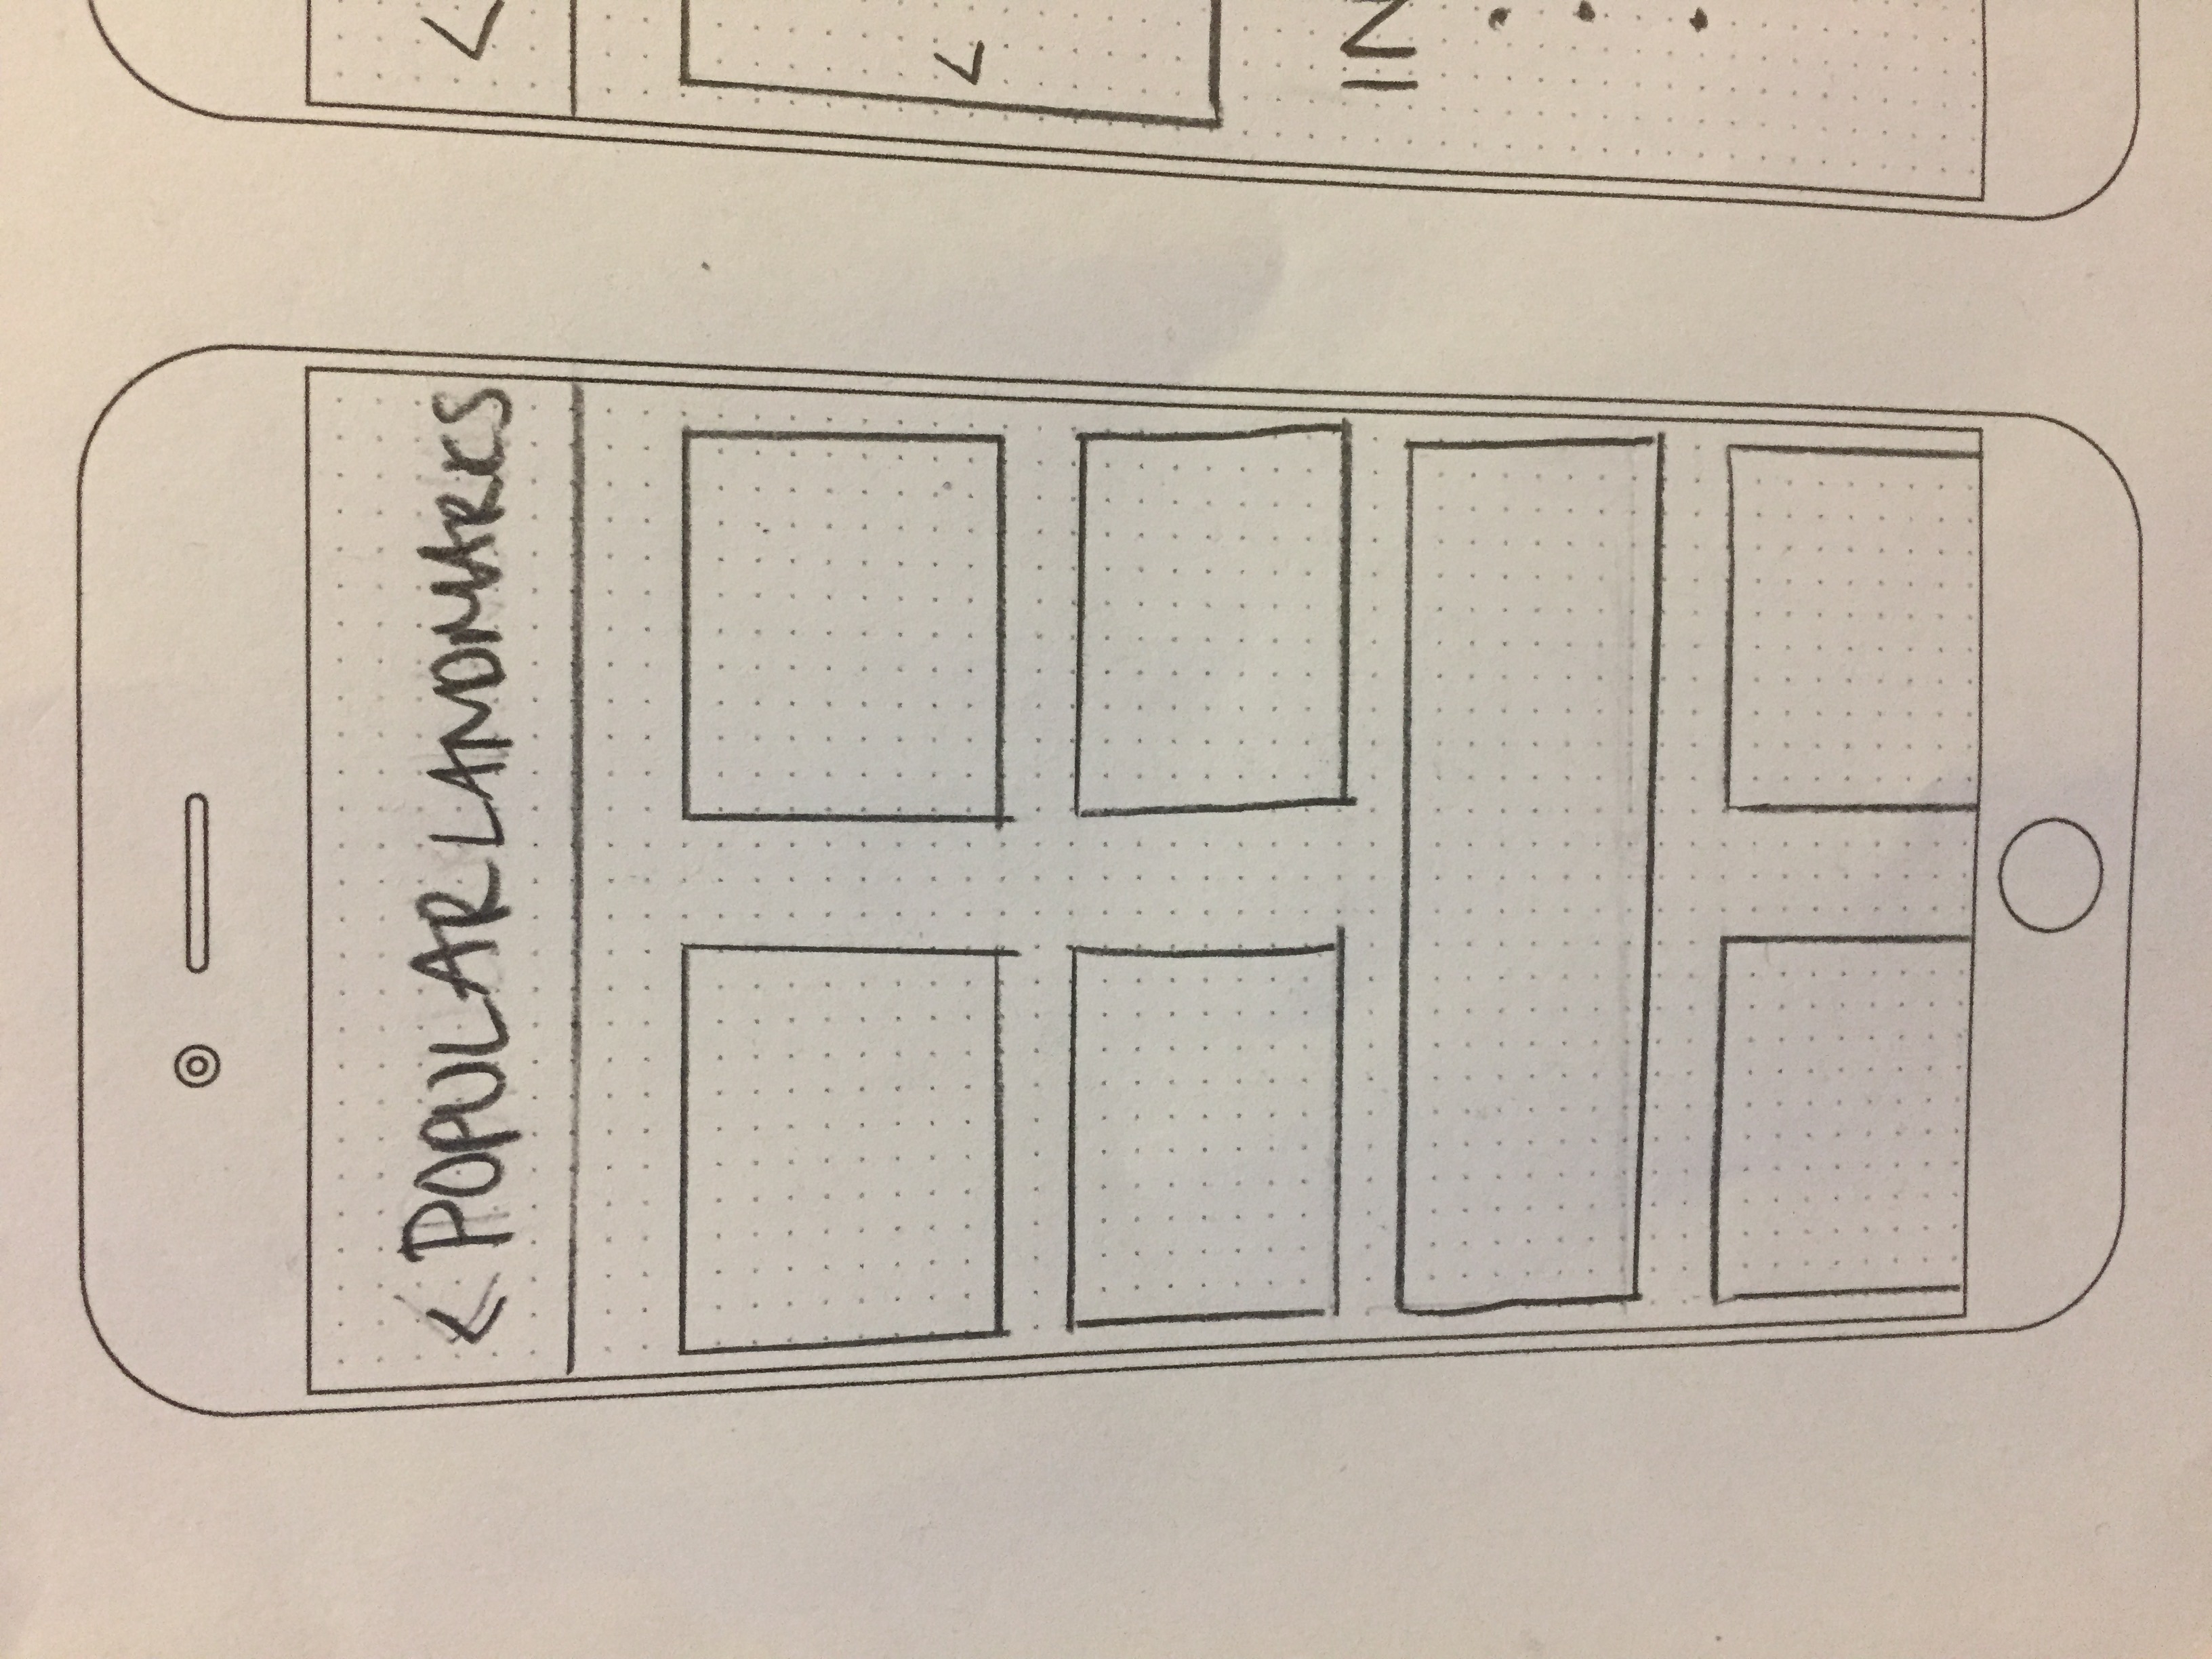 < POPULAR LANDMARKS
<
<
IN